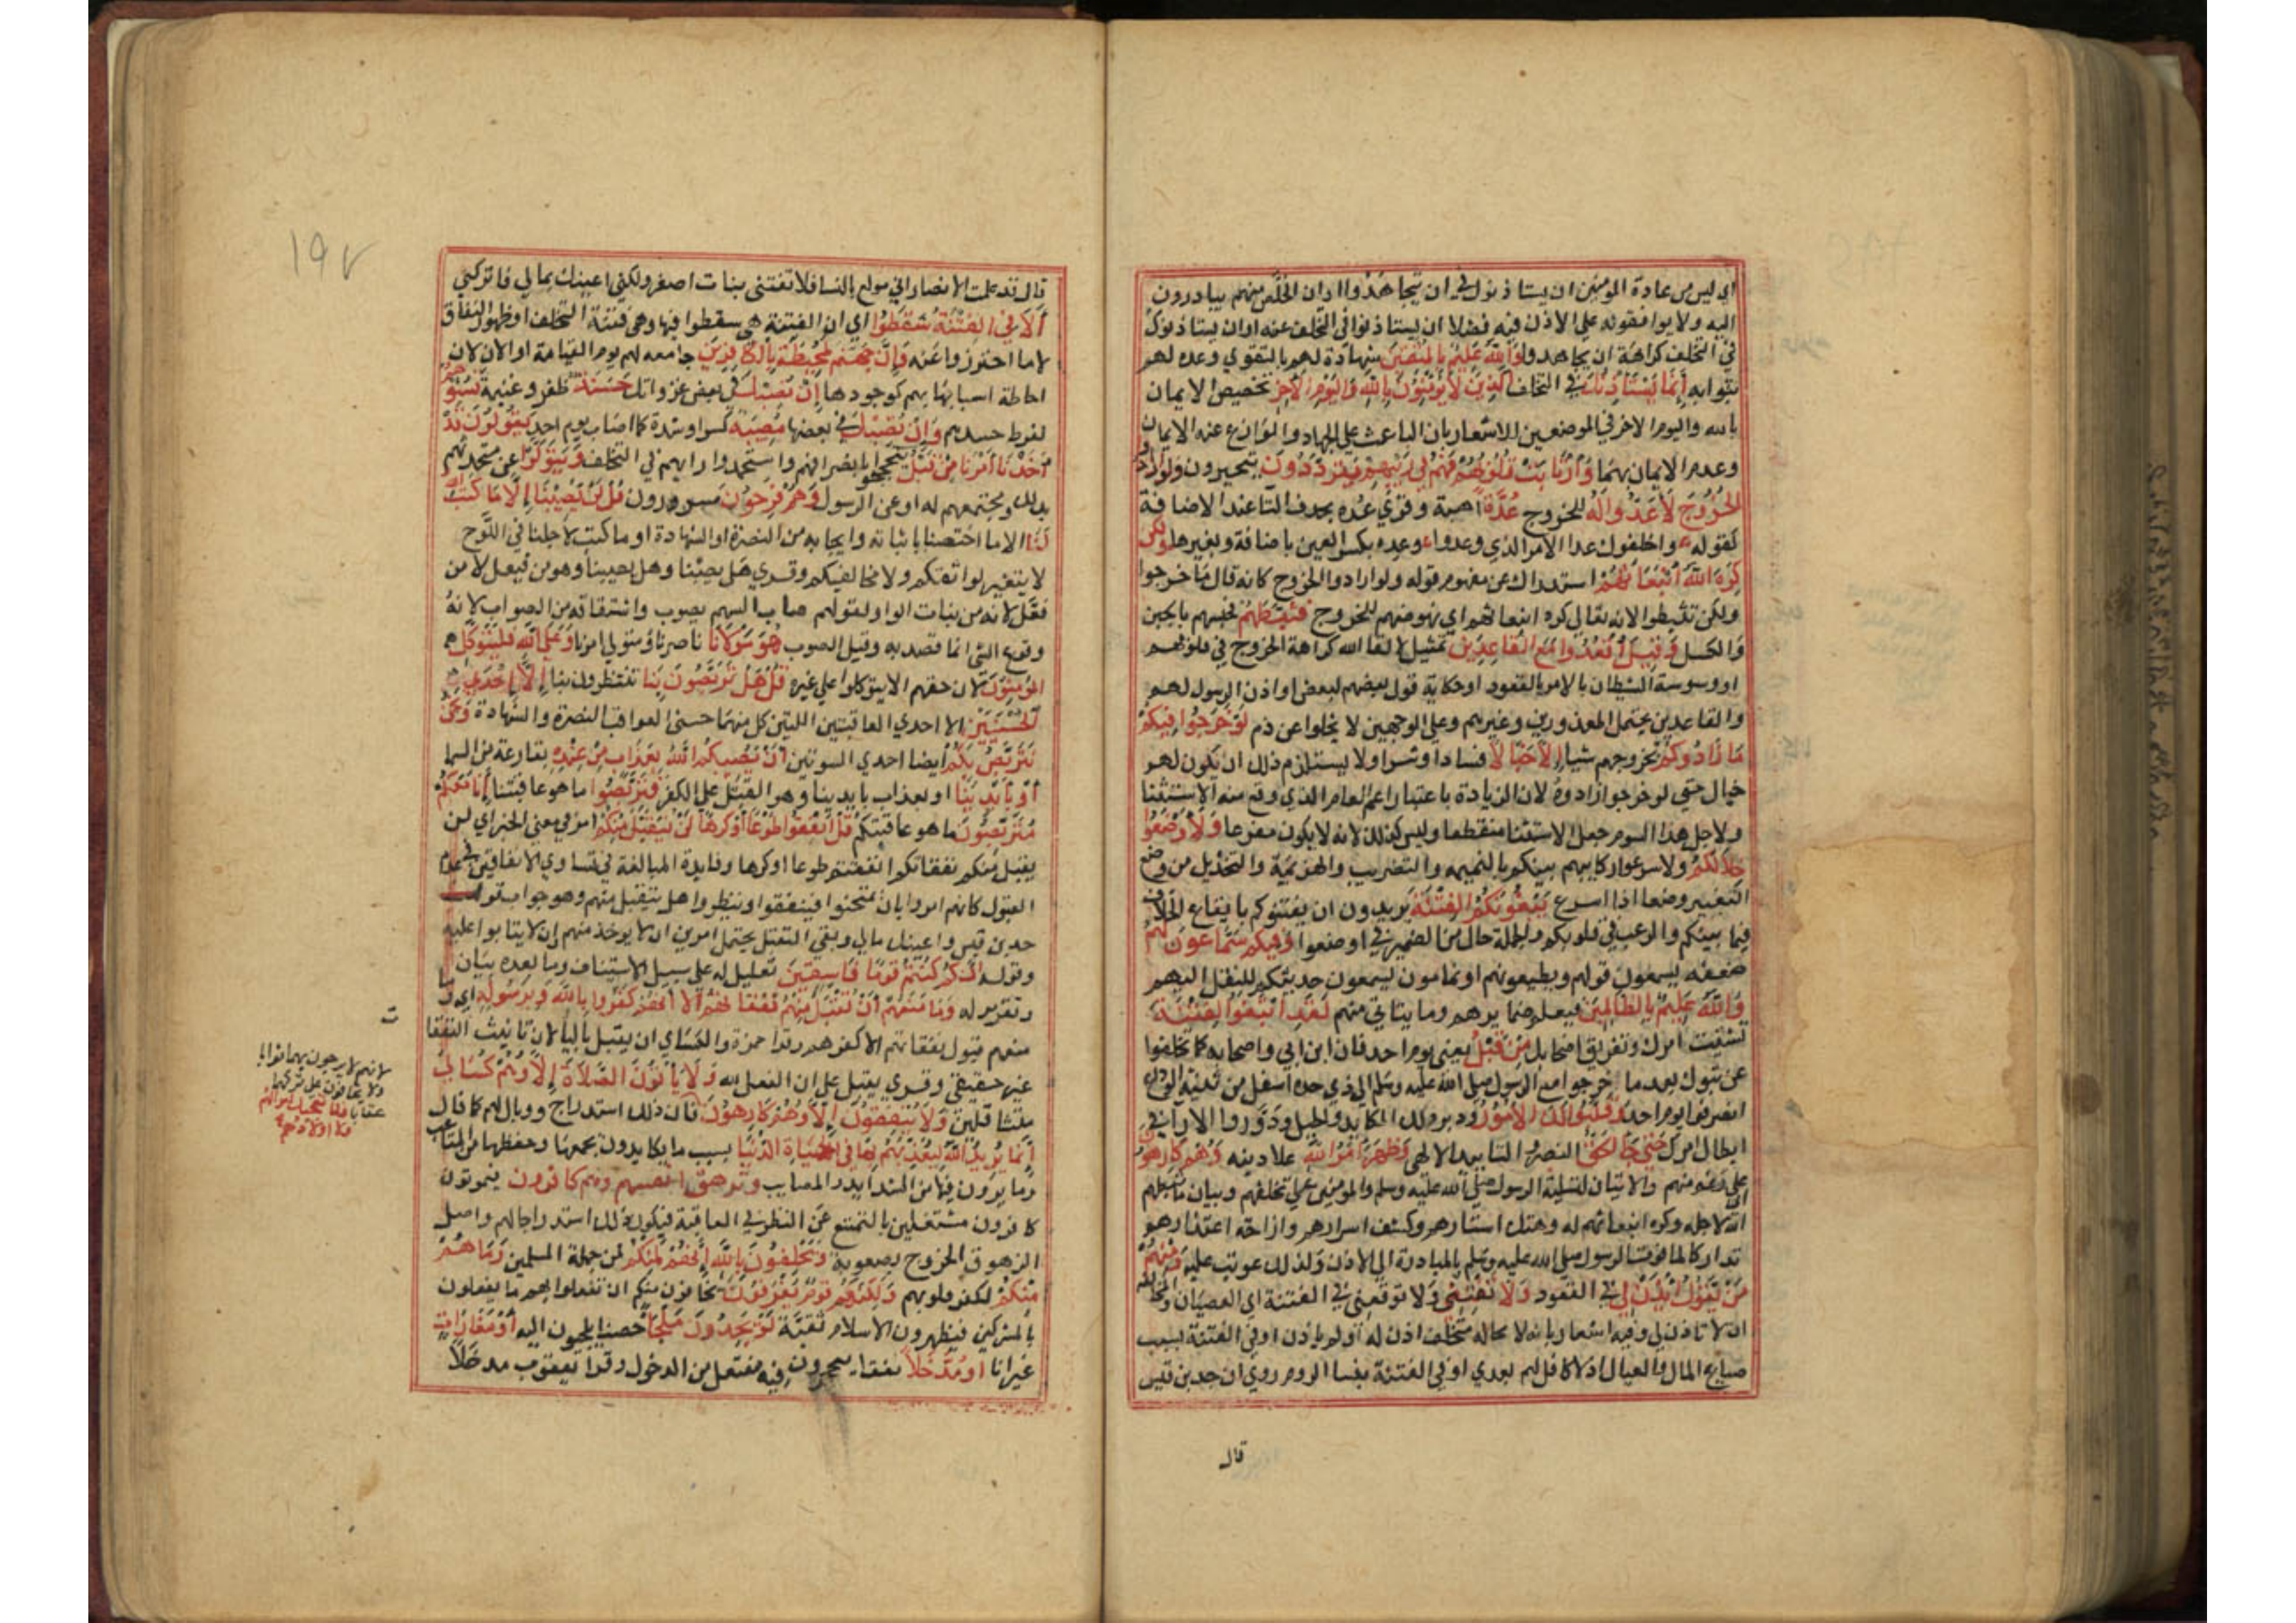 اي ليس من عادة المؤمنين ان يستاذنوك في ان يجاهدوا وان الخلص منهم يبادرون
اليه ولا يوافقونه على الاذن فيه فضلا ان يستاذنوا في التخلف عنه او ان يستاذنوك
في التخلف كراهة ان يجاهدوا والله عليم بالمتقين شهادة لهم بالتقوي وعده لهم
بثوابه انما يستاذنك في التخلف الذين لا يؤمنون بالله واليوم الاخر تخصيص الايمان
بالله واليوم الاخر في الموضعين للاشعار بان الباعث على الجهاد والوازع عنه الايمان
وعدم الايمان بهما وارتابت قلوبهم فهم في ريبهم يترددون يتحيرون ولو ارادوا
الخروج لاعدوا له للخروج عدة اهبة وقرئ عده بحذف التا عند الاضافة
كقوله واخلفوك عدا الامر الذي وعدوا وعده بكسر العين باضافة وبغيرها ولكن
كره الله انبعاثهم استدراك عن مفهوم قوله ولو ارادوا الخروج كانه قال ما خرجوا
ولكن تثبطوا لانه تعالي كره انبعاثهم اي نهوضهم للخروج فثبطهم فحبسهم بالجبن
والكسل وقيل اقعدوا مع القاعدين تمثيل لالقا الله كراهة الخروج في قلوبهم
او وسوسة الشيطان بالامر بالقعود او حكاية قول بعضهم لبعض او اذن الرسول لهم
والقاعدين يحتمل المعذورين وغيرهم وعلي الوجهين لا يخلوا عن ذم لو خرجوا فيكم
ما زادوكم بخروجهم شيا الا خبالا فسادا وشرا ولا يستلزم ذلك ان يكون لهم
خبال حتي لو خرجوا زادوه لان الزيادة باعتبار اعم العام الذي وقع منه الاستثنا
ولاجل هذا التوهم جعل الاستثنا منقطعا وليس كذلك لانه لا يكون مفرغا ولاوضعوا
خلالكم ولاسرعوا ركايبهم بينكم بالنميمه والتضريب والهزيمة والتخذيل من وضع
البعير وضعا اذا اسرع يبغونكم الفتنة يريدون ان يفتنوكم بايقاع الخلاف
فيما بينكم والرعب في قلوبكم والجملة حال من الضمير في اوضعوا وفيكم سماعون لهم
ضعفه يسمعون قولهم ويطيعونهم او نمامون يسمعون حديثكم للنقل اليهم
والله عليم بالظالمين فيعلم ضمايرهم وما يتاتي منهم لقد ابتغوا الفتنة
تشتيت امرك وتفريق اصحابك من قبل يعني يوم احد فان ابن ابي واصحابه كما تخلفوا
عن تبوك بعد ما خرجوا مع الرسول صلى الله عليه وسلم الى ذي جده اسفل من ثنية الوداع
انصرفوا يوم احد وقلبوا لك الامور ودبروا لك المكايد والحيل ودوروا الارآ في
ابطال امرك حتي جا الحق النصر والتاييد الالهي وظهر امر الله علا دينه وهم كارهون
على رغم منهم والايتان لتسلية الرسول صلى الله عليه وسلم والمؤمنين على تخلفهم وبيان ما ثبطهم
الله لاجله وكره انبعاثهم له وهتك استارهم وكشف اسرارهم وازاحة اعتذارهم
تداركا لما فوت الرسول صلى الله عليه وسلم بالمبادرة الى الاذن ولذلك عوتب عليه ومنهم
من يقول ائذن لي في القعود ولا تفتني ولا توقعني في الفتنة اي العصيان والمخالفة
ان لا تاذن لي وفيه اشعار بانه لا محالة متخلف اذن له او لم ياذن او في الفتنة بسبب
ضياع المال والعيال اذ لا كافل لهم بعدي او في الفتنة بنسا الروم روي ان جد بن قيس
قال
١٩٧
قال قد علمت الانصار اني مولع بالنسا فلا تفتني ببنات اصفر ولكني اعينك بمالي فاتركني
الا في الفتنة سقطوا اي ان الفتنة هي سقطوا فيها وهي فتنة التخلف او ظهور النفاق
لا ما احترزوا عنه وان جهنم لمحيطة بالكافرين جامعه لهم يوم القيامة او الان لان
احاطة اسبابها بهم كوجودها ان تصبك في بعض غزواتك حسنة ظفر وغنيمة تسؤهم
لفرط حسدهم وان تصبك في بعضها مصيبة كسر او شدة كما اصاب يوم احد يقولوا قد
اخذنا امرنا من قبل تبجحوا بانصرافهم واستحمدوا رايهم في التخلف ويتولوا عن متحدثهم
بذلك ومجتمعهم له او عن الرسول وهم فرحون مسرورون قل لن يصيبنا الا ما كتب الله
لنا الا ما اختصنا باثباته وايجابه من النصرة او الشهادة او ما كتب لاجلنا في اللوح
لا يتغير بموافقتكم ولا مخالفتكم وقري هل يصبنا وهل يصيبنا وهو من فيعل لا من
فعل لانه من بنات الواو لقولهم صاب السهم يصوب واشتقاقه من الصواب لانه
وقوع الشي انما قصد به وقيل الصوب هو مولانا ناصرنا ومتولي امرنا وعلى الله فليتوكل
المؤمنون لان حقهم الا يتوكلوا علي غيره قل هل تربصون بنا تنتظرون بنا الا احدي
الحسنيين الا احدي العاقبتين اللتين كل منهما حسنى العواقب النصرة والشهادة ونحن
نتربص بكم ايضا احدي السوئين ان يصيبكم الله بعذاب من عنده بقارعة من السما
او بايدينا او بعذاب بايدينا وهو القتل على الكفر فتربصوا ما هو عاقبتنا انا معكم
متربصون ما هو عاقبتكم قل انفقوا طوعا او كرها لن يتقبل منكم امر في معنى الخبر اي لن
يقبل منكم نفقاتكم انفقتم طوعا او كرها وفايدة المبالغة في تساوي الانفاقين في عدم
القبول كانهم امروا بان يمتحنوا فينفقوا وينظروا هل يتقبل منهم وهو جواب قول
جد بن قيس واعينك بمالي ونفي التقبل يحتمل امرين ان لا يوخذ منهم وان لا يثابوا عليه
وقوله انكم كنتم قوما فاسقين تعليل له على سبيل الاستيناف وما بعده بيان
وتقرير له وما منعهم ان تقبل منهم نفقاتهم الا انهم كفروا بالله وبرسوله اي وما
منعهم قبول نفقاتهم الا كفرهم وقرا حمزة والكسائي ان يقبل باليا لان تانيث النفقا
غير حقيقي وقري يقبل على ان الفعل لله ولا ياتون الصلاة الا وهم كسالى
متثاقلين ولا ينفقون الا وهم كارهون فان ذلك استدراج ووبال لهم كما قال
انما يريد الله ليعذبهم بها في الحياة الدنيا بسبب ما يكابدون بجمعها وحفظها من المتاعب
وما يرون فيها من الشدايد والمصايب وتزهق انفسهم وهم كافرون فيموتون
كافرون مشتغلين بالتمتع عن النظر في العاقبة فيكون ذلك استدراجا لهم واصل
الزهوق الخروج بصعوبة ويحلفون بالله انهم لمنكم لمن جملة المسلمين وما هم
منكم لكفر قلوبهم ولكنهم قوم يفرقون يخافون منكم ان تفعلوا بهم ما يفعلون
بالمشركين فيظهرون الاسلام تقية لو يجدون ملجا حصنا يلجيون اليه او مغارات
غيرانا او مدخلا نفقا ينجحرون فيه مفتعل من الدخول وقرا يعقوب مدخلا
ت
لانهم لا يرجون بهما ثوابا
ولا يخافون على تركهما
عقابا فلا تعجبك اموالهم
ولا اولادهم